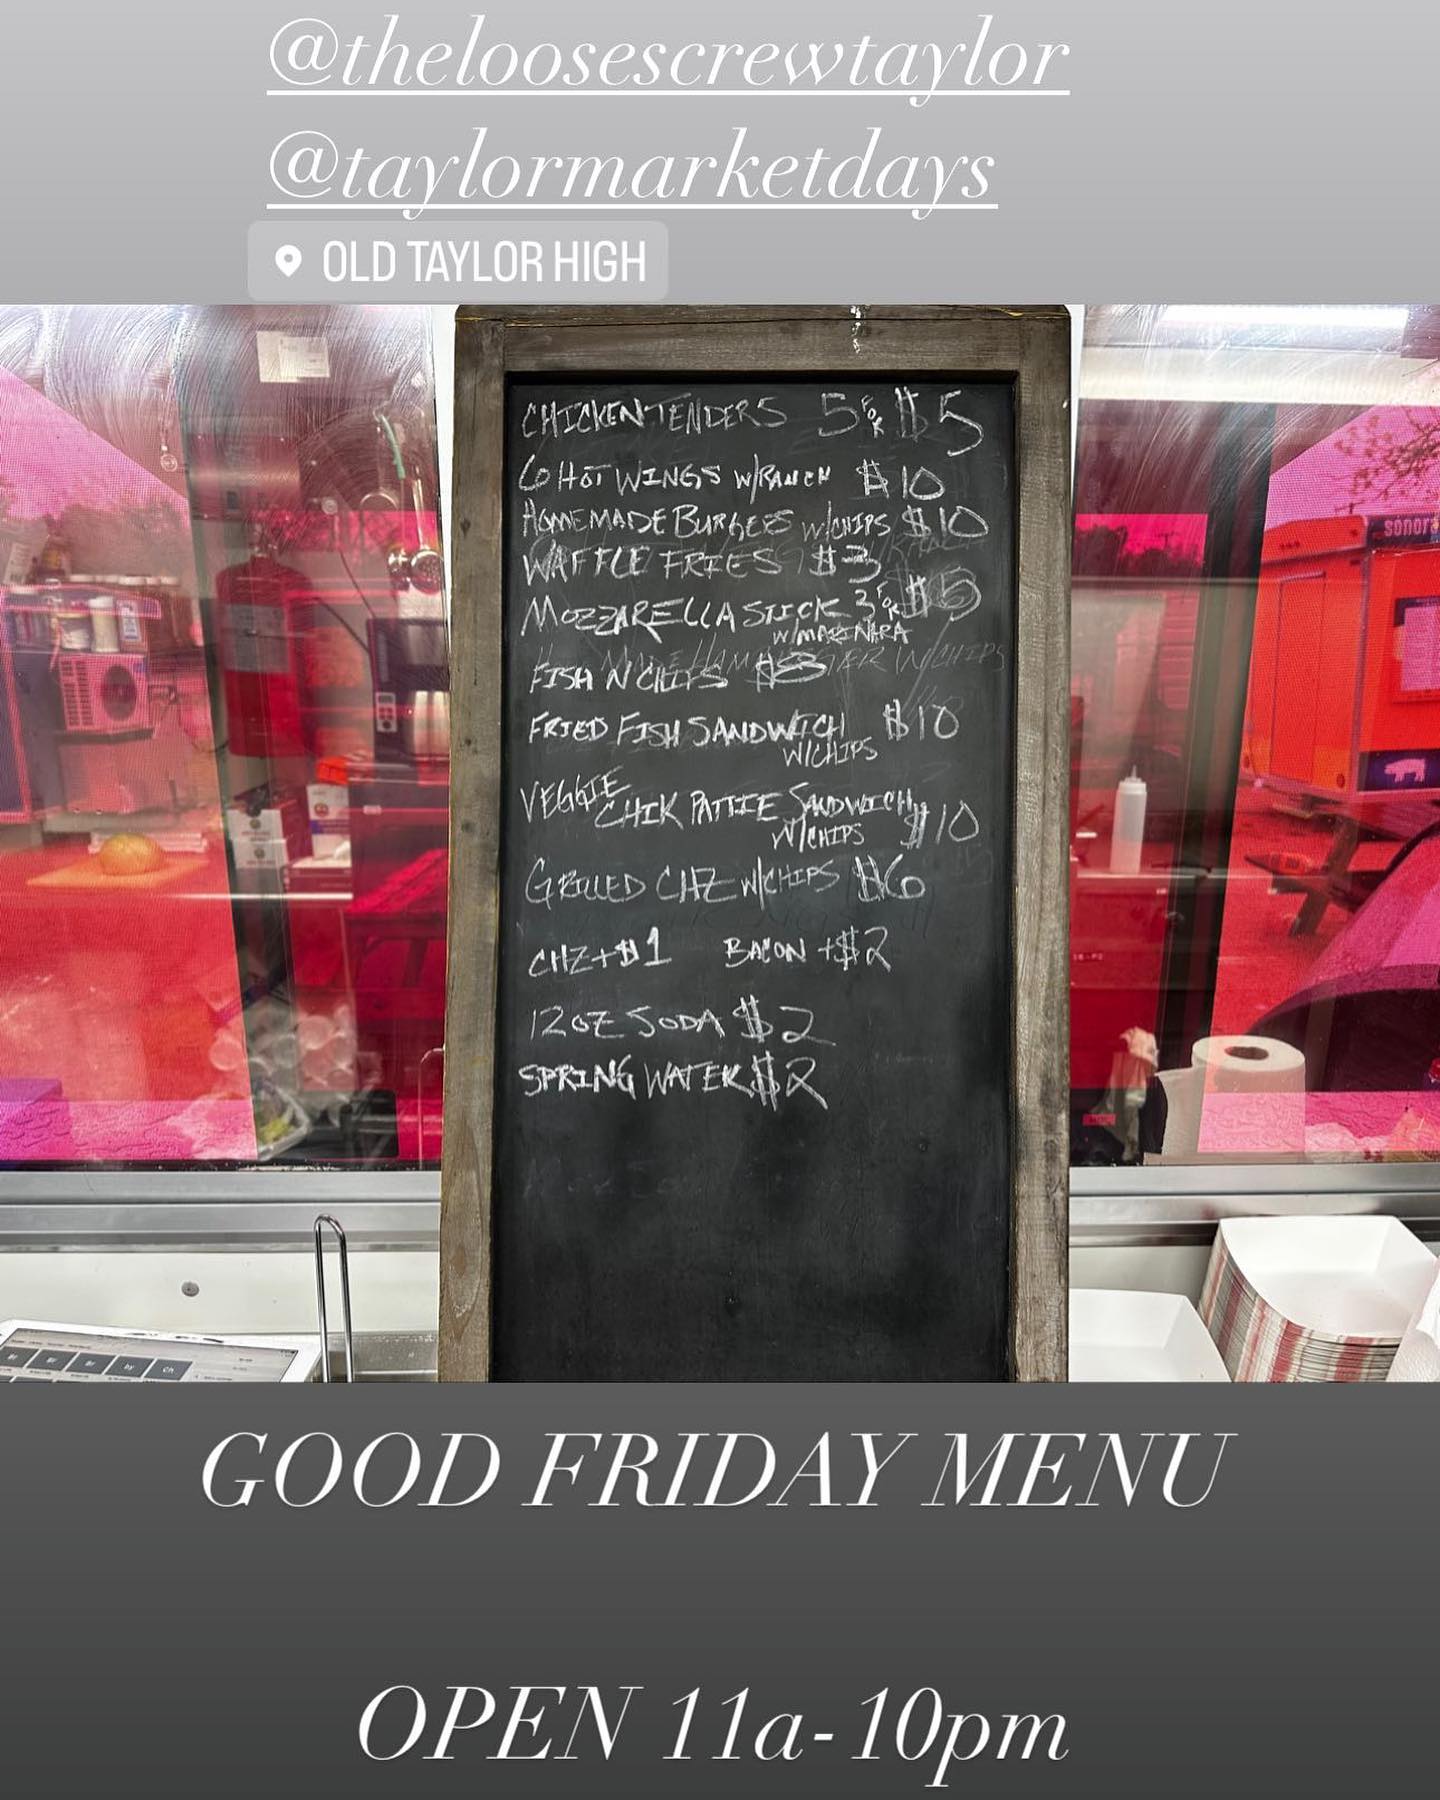 @theloosescrewtaylor
@taylormarketdays
OLD TAYLOR HIGH
CHICKEN TENDERS 5 FOR $5
6 HOT WINGS W/RANCH $10
HOMEMADE BURGERS W/CHIPS $10
WAFFLE FRIES $3
MOZZARELLA STICK 3 FOR $5
W/MARINARA
FISH N CHIPS $8
FRIED FISH SANDWICH $10
W/CHIPS
VEGGIE
CHIK PATTIE SANDWICH $10
W/CHIPS
GRILLED CHZ W/CHIPS $6
CHZ+$1 BACON +$2
12OZ SODA $2
SPRING WATER $2
sonor
GOOD FRIDAY MENU
OPEN 11a-10pm